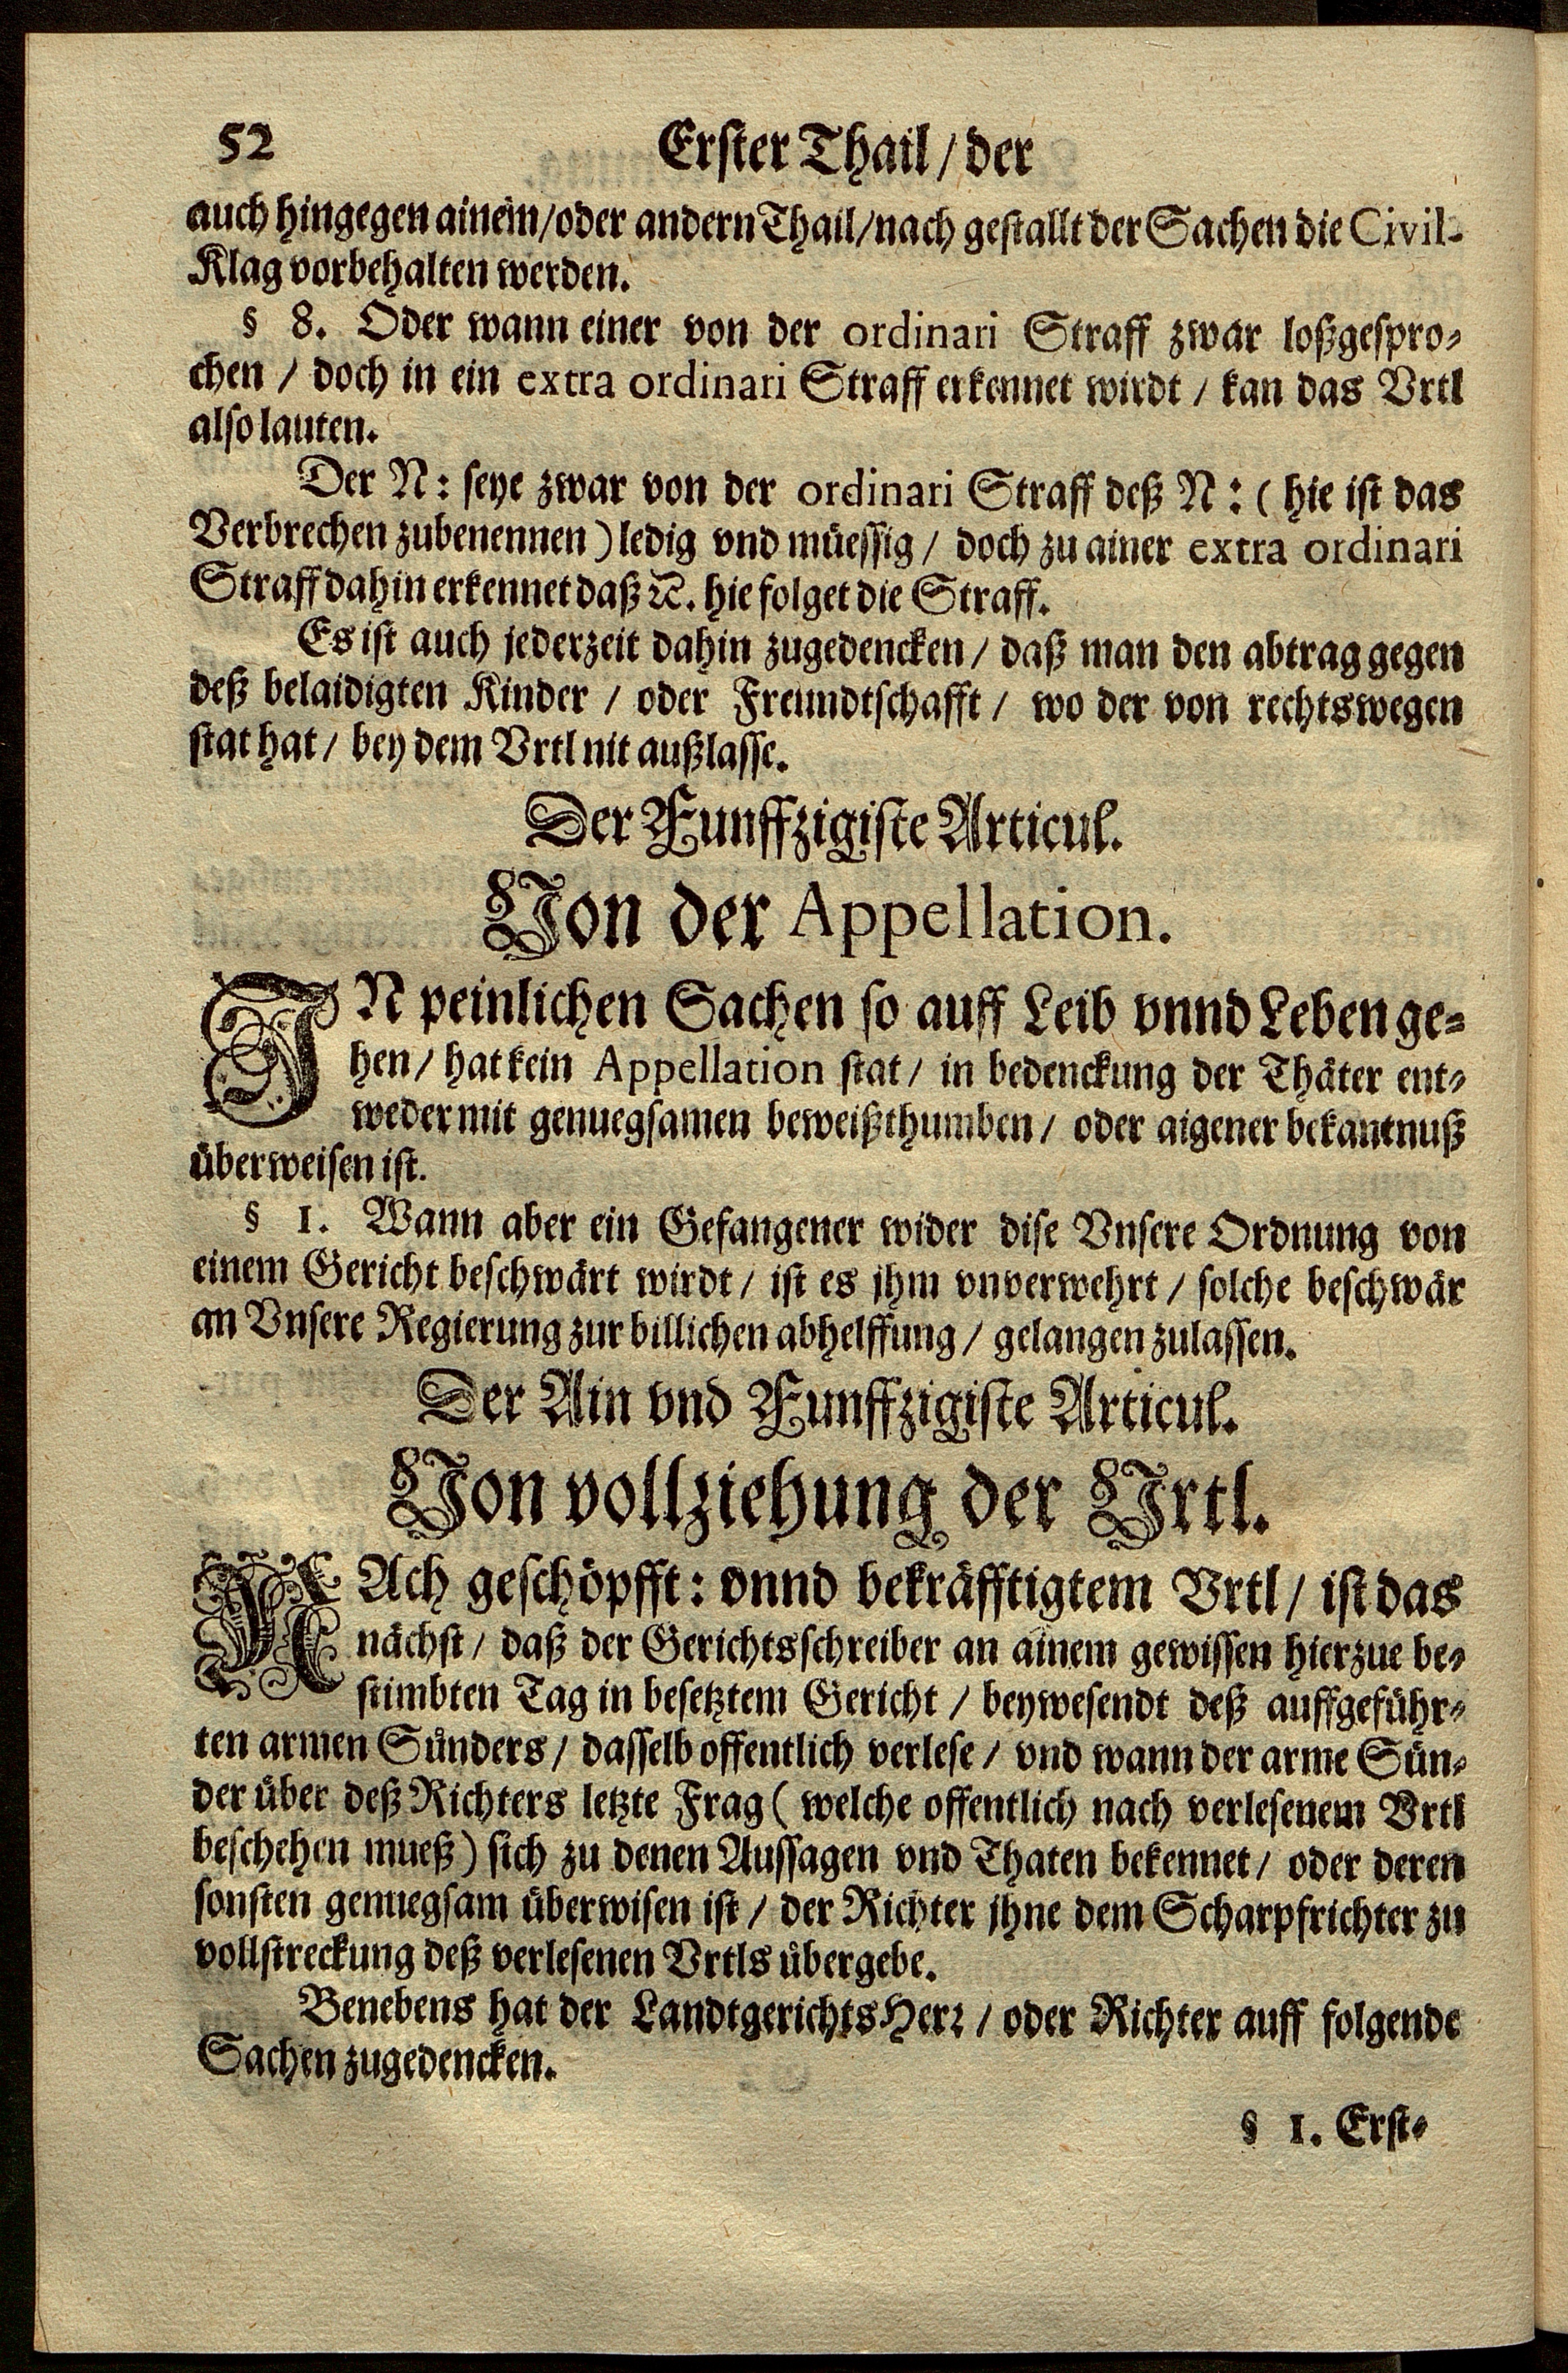 52 Erster Thail / der
auch hingegen ainem / oder andern Thail / nach gestallt der Sachen die Civil-
Klag vorbehalten werden.
§ 8. Oder wann einer von der ordinari Straff zwar loßgespro-
chen / doch in ein extra ordinari Straff erkennet wirdt / kan das Vrtl
also lauten.
Der N: seye zwar von der ordinari Straff deß N: ( hie ist das
Verbrechen zubenennen ) ledig vnd müessig / doch zu ainer extra ordinari
Straff dahin erkennet daß ꝛc. hie folget die Straff.
Es ist auch jederzeit dahin zugedencken / daß man den abtrag gegen
deß belaidigten Kinder / oder Freundtschafft / wo der von rechtswegen
stat hat / bey dem Vrtl nit außlasse.
Der Funffzigiste Articul.
Von der Appellation.
IN peinlichen Sachen so auff Leib vnnd Leben ge-
hen / hat kein Appellation stat / in bedenckung der Thäter ent-
weder mit genuegsamen beweißthumben / oder aigener bekantnuß
überweisen ist.
§ 1. Wann aber ein Gefangener wider dise Vnsere Ordnung von
einem Gericht beschwärt wirdt / ist es jhm vnverwehrt / solche beschwär
an Vnsere Regierung zur billichen abhelffung / gelangen zulassen.
Der Ain vnd Funffzigiste Articul.
Von vollziehung der Vrtl.
NAch geschöpfft: vnnd bekräfftigtem Vrtl / ist das
nächst / daß der Gerichtsschreiber an ainem gewissen hierzue be-
stimbten Tag in besetztem Gericht / beywesendt deß auffgeführ-
ten armen Sünders / dasselb offentlich verlese / vnd wann der arme Sün-
der über deß Richters letzte Frag ( welche offentlich nach verlesenem Vrtl
beschehen mueß ) sich zu denen Aussagen vnd Thaten bekennet / oder deren
sonsten genuegsam überwisen ist / der Richter jhne dem Scharpfrichter zu
vollstreckung deß verlesenen Vrtls übergebe.
Benebens hat der LandtgerichtsHerꝛ / oder Richter auff folgende
Sachen zugedencken.
§ 1. Erst-